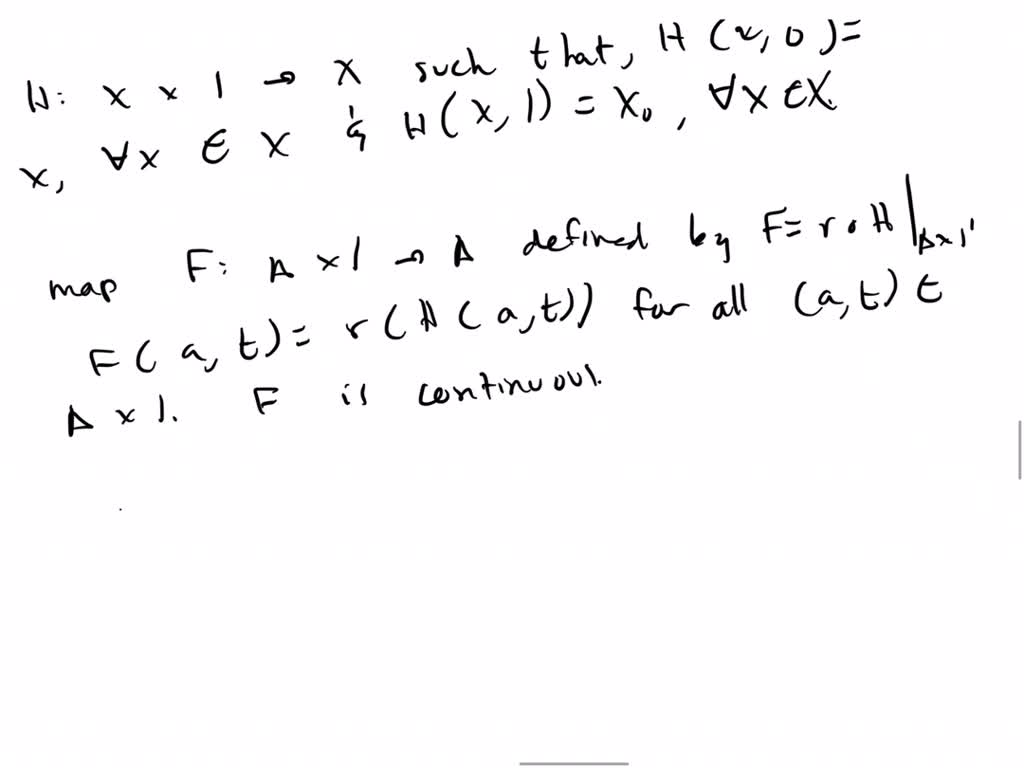 H: X × I → X such that, H(x, 0) =
x, ∀x ∈ X & H(x, 1) = x₀, ∀x ∈ X.
map F: A × I → A defined by F = r ∘ H|A×I,
F(a, t) = r(H(a, t)) for all (a, t) ∈
A × I. F is continuous.